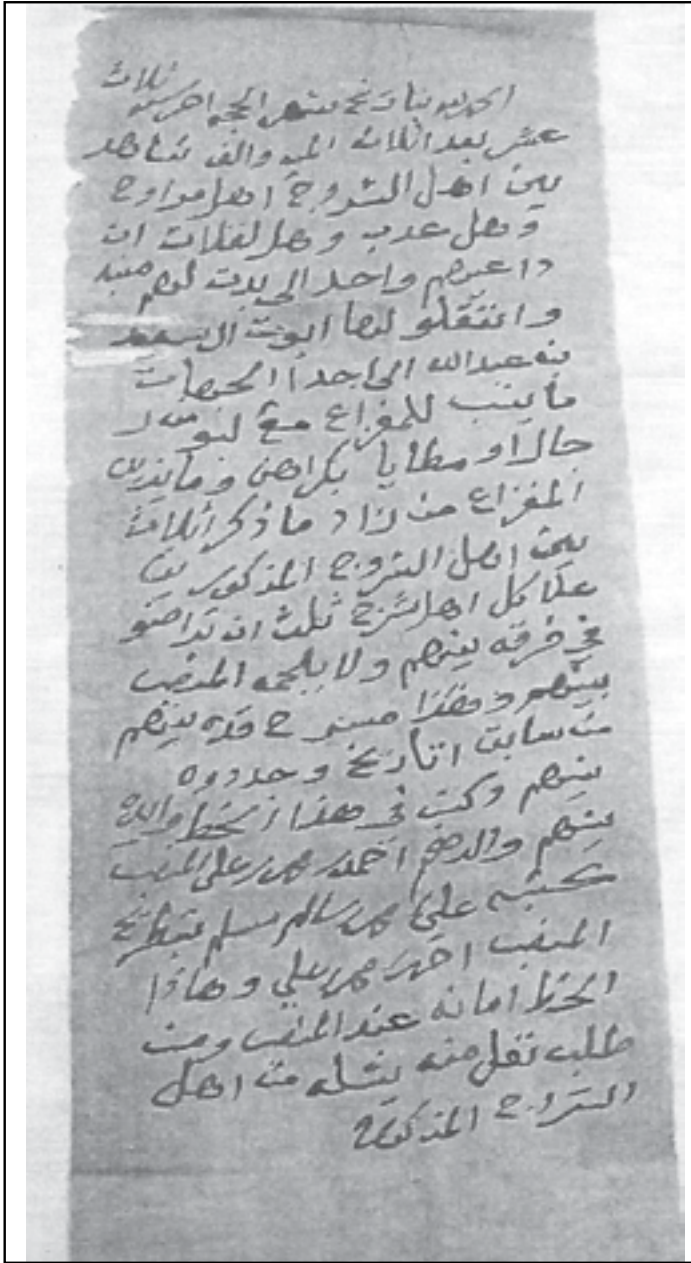 الحمد لله بتاريخ شهر الحجه اخر سنه ثلاث
عشر بعد اثلاث الميه والف تشاهد
بين اهل الشروج اهل مراوح
وهل عدب وهل لفلات ان
داعيهم واحد الى بدت لهم منيه
وانتقلو لها ابوت ال سعد
بن عبدالله الى احدا الجهات
ما ينب للمفزاع مع لبو
حال او مطايا بكراهن وما يزيد
المفزاع من زاد ما ذكر اثلاث
بين اهل الشروج المذكورين
علا كل اهل شرج ثلث ان تراضو
في فرقه بينهم ولا بلحمه المنصب
بينهم وهذا مسرح قده بينهم
من سابق اتاريخ وحددوه
بينهم وكتب في هذا الخط والله
بينهم والرضي احمد بن علي المنصب
كتبه علي بن سالم مسلم بنظر
المنصب احمد بن علي وهاذا
الخط امانه عند المنصب ومن
طلب نقل منه يشله من اهل
الشروج المذكوره